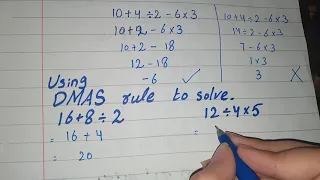 10+4÷2-6×3
10+2-6×3
10+2-18
12-18
-6 ✓
10+4÷2-6×3
14÷2-6×3
7-6×3
1×3
3 ✗
Using
DMAS rule to solve.
16+8÷2
= 16+4
= 20
12÷4×5
=